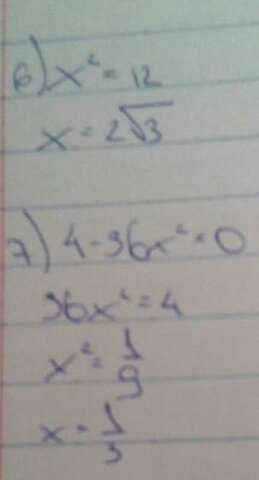 6) x² = 12
x = 2√3
7) 4 - 36x² = 0
36x² = 4
x² = 1/9
x = 1/3